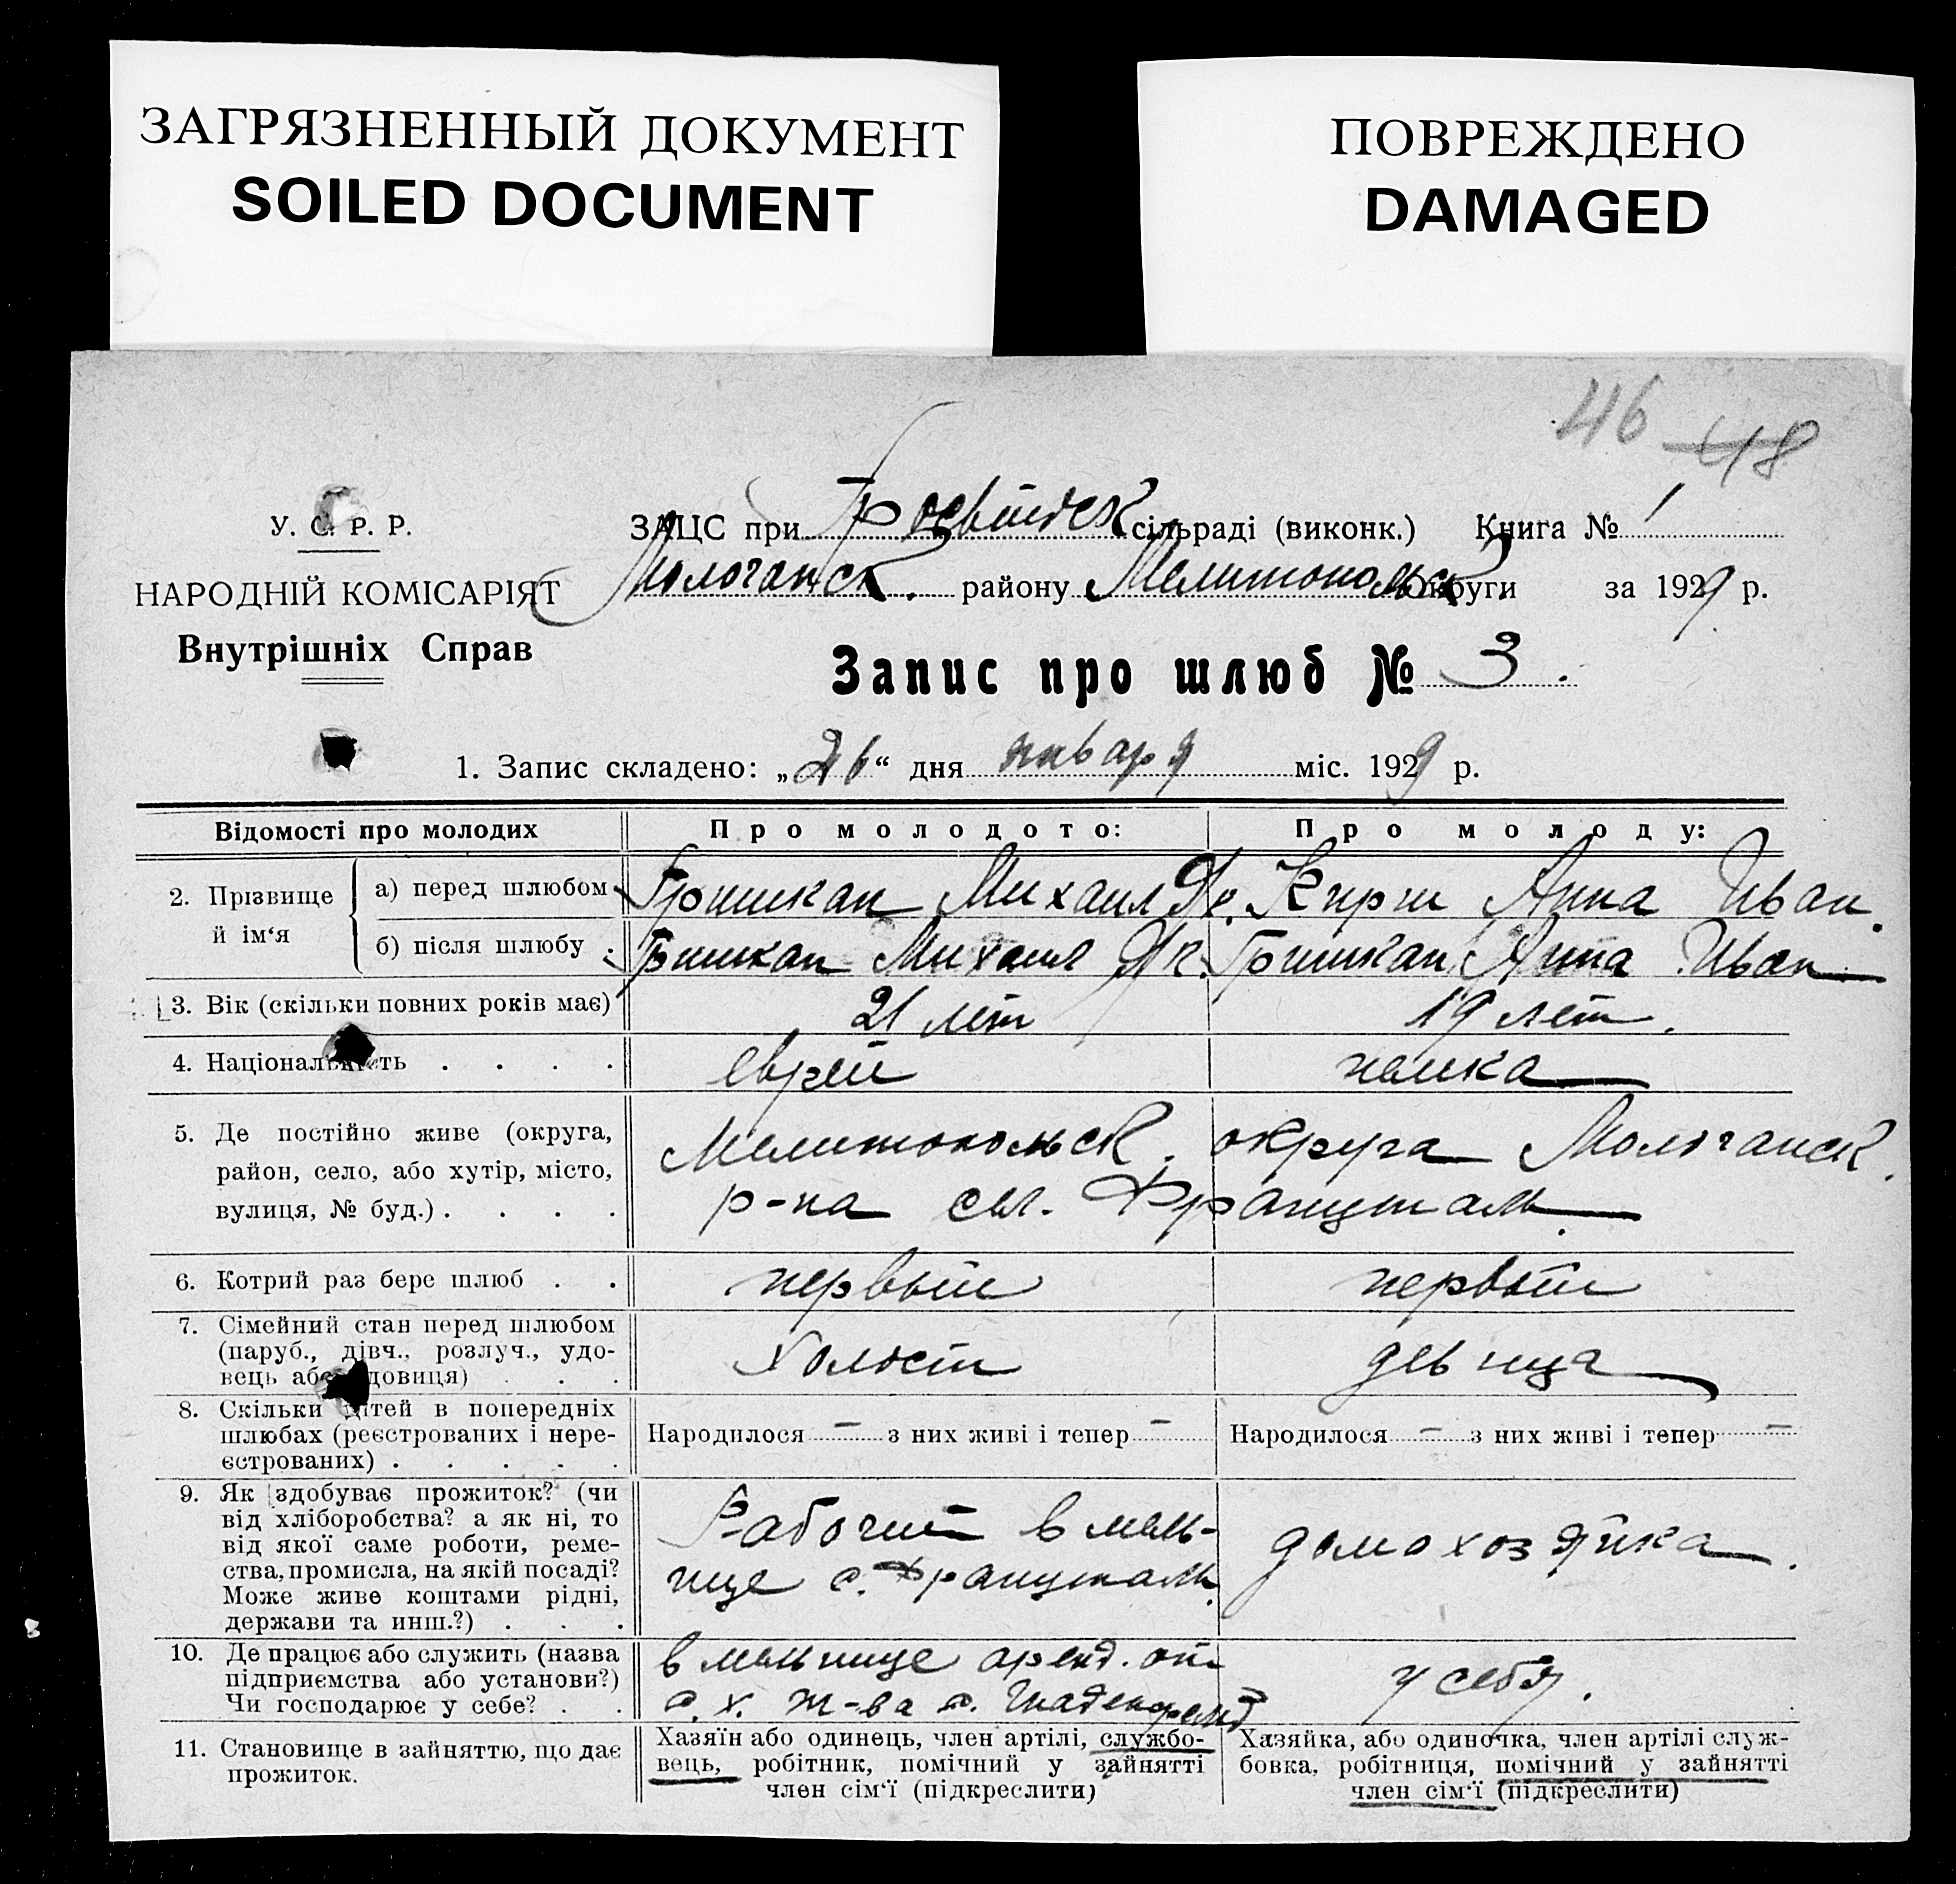 ЗАГРЯЗНЕННЫЙ ДОКУМЕНТ
SOILED DOCUMENT
ПОВРЕЖДЕНО
DAMAGED
46 48
У. С. Р. Р.
НАРОДНІЙ КОМІСАРІЯТ
Внутрішніх Справ
ЗАЦС при сільраді (виконк.) Книга № 1
Молочанск. району Мелитопольск Округи за 1929 р.
Запис про шлюб № 3.
1. Запис складено: „26“ дня января міс. 1929 р.
Відомості про молодих
Про молодого:
Про молоду:
2. Прізвище й ім‘я
а) перед шлюбом
Гришкан Михаил Як.
Кирш Анна Иван.
б) після шлюбу .
Гришкан Михаил Як.
Гришкан Анна Иван
3. Вік (скільки повних років має)
21 лет
19 лет.
4. Національність . . . .
еврей
немка
5. Де постійно живе (округа,
район, село, або хутір, місто,
вулиця, № буд.) . . . .
Мелитопольск. округа Молочанск.
р-на сел. Французталь
6. Котрий раз бере шлюб . .
первый
первый
7. Сімейний стан перед шлюбом
(паруб., дівч., розлуч., удо-
вець або удовиця) . . .
холост
девица
8. Скільки дітей в попередніх
шлюбах (реєстрованих і нере-
єстрованих) . . . . .
Народилося — з них живі і тепер —
Народилося — з них живі і тепер —
9. Як здобуває прожиток? (чи
від хліборобства? а як ні, то
від якої саме роботи, реме-
ства, промисла, на якій посаді?
Може живе коштами рідні,
держави та инш.?) . . .
Рабочий в мель-
нице с.
домохозяйка.
10. Де працює або служить (назва
підприємства або установи?)
Чи господарює у себе? . .
в мельнице аренд. от
с. х. т-ва с. Гнаденфельд
у себя.
11. Становище в зайняттю, що дає
прожиток.
Хазяїн або одинець, член артілі, службо-
вець, робітник, помічний у зайнятті
член сім‘ї (підкреслити)
Хазяйка, або одиночка, член артілі служ-
бовка, робітниця, помічний у зайнятті
член сім‘ї (підкреслити)